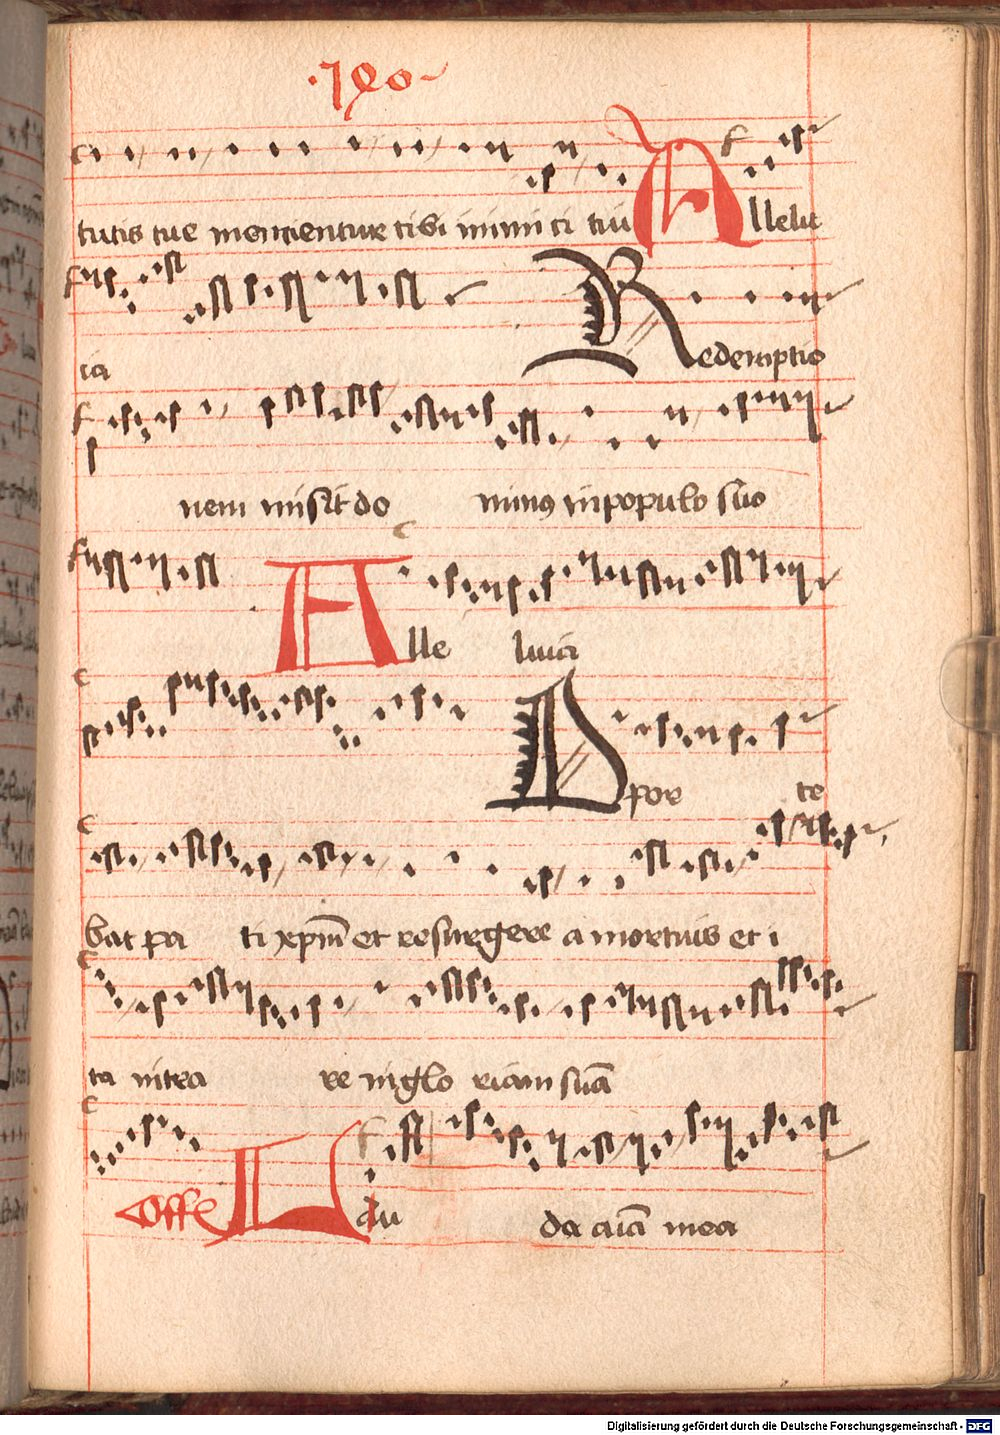 ·190·
tutis tue mencientur tibi inimici tui Allelu
ia Redemptio
nem misit do minus in populo suo
Alle luia
Opor te
bat pa ti xpm et resurgere a mortuis et i
ta intra re in glo riam sua
Offe Lau da aia mea
Digitalisierung gefördert durch die Deutsche Forschungsgemeinschaft - DFG